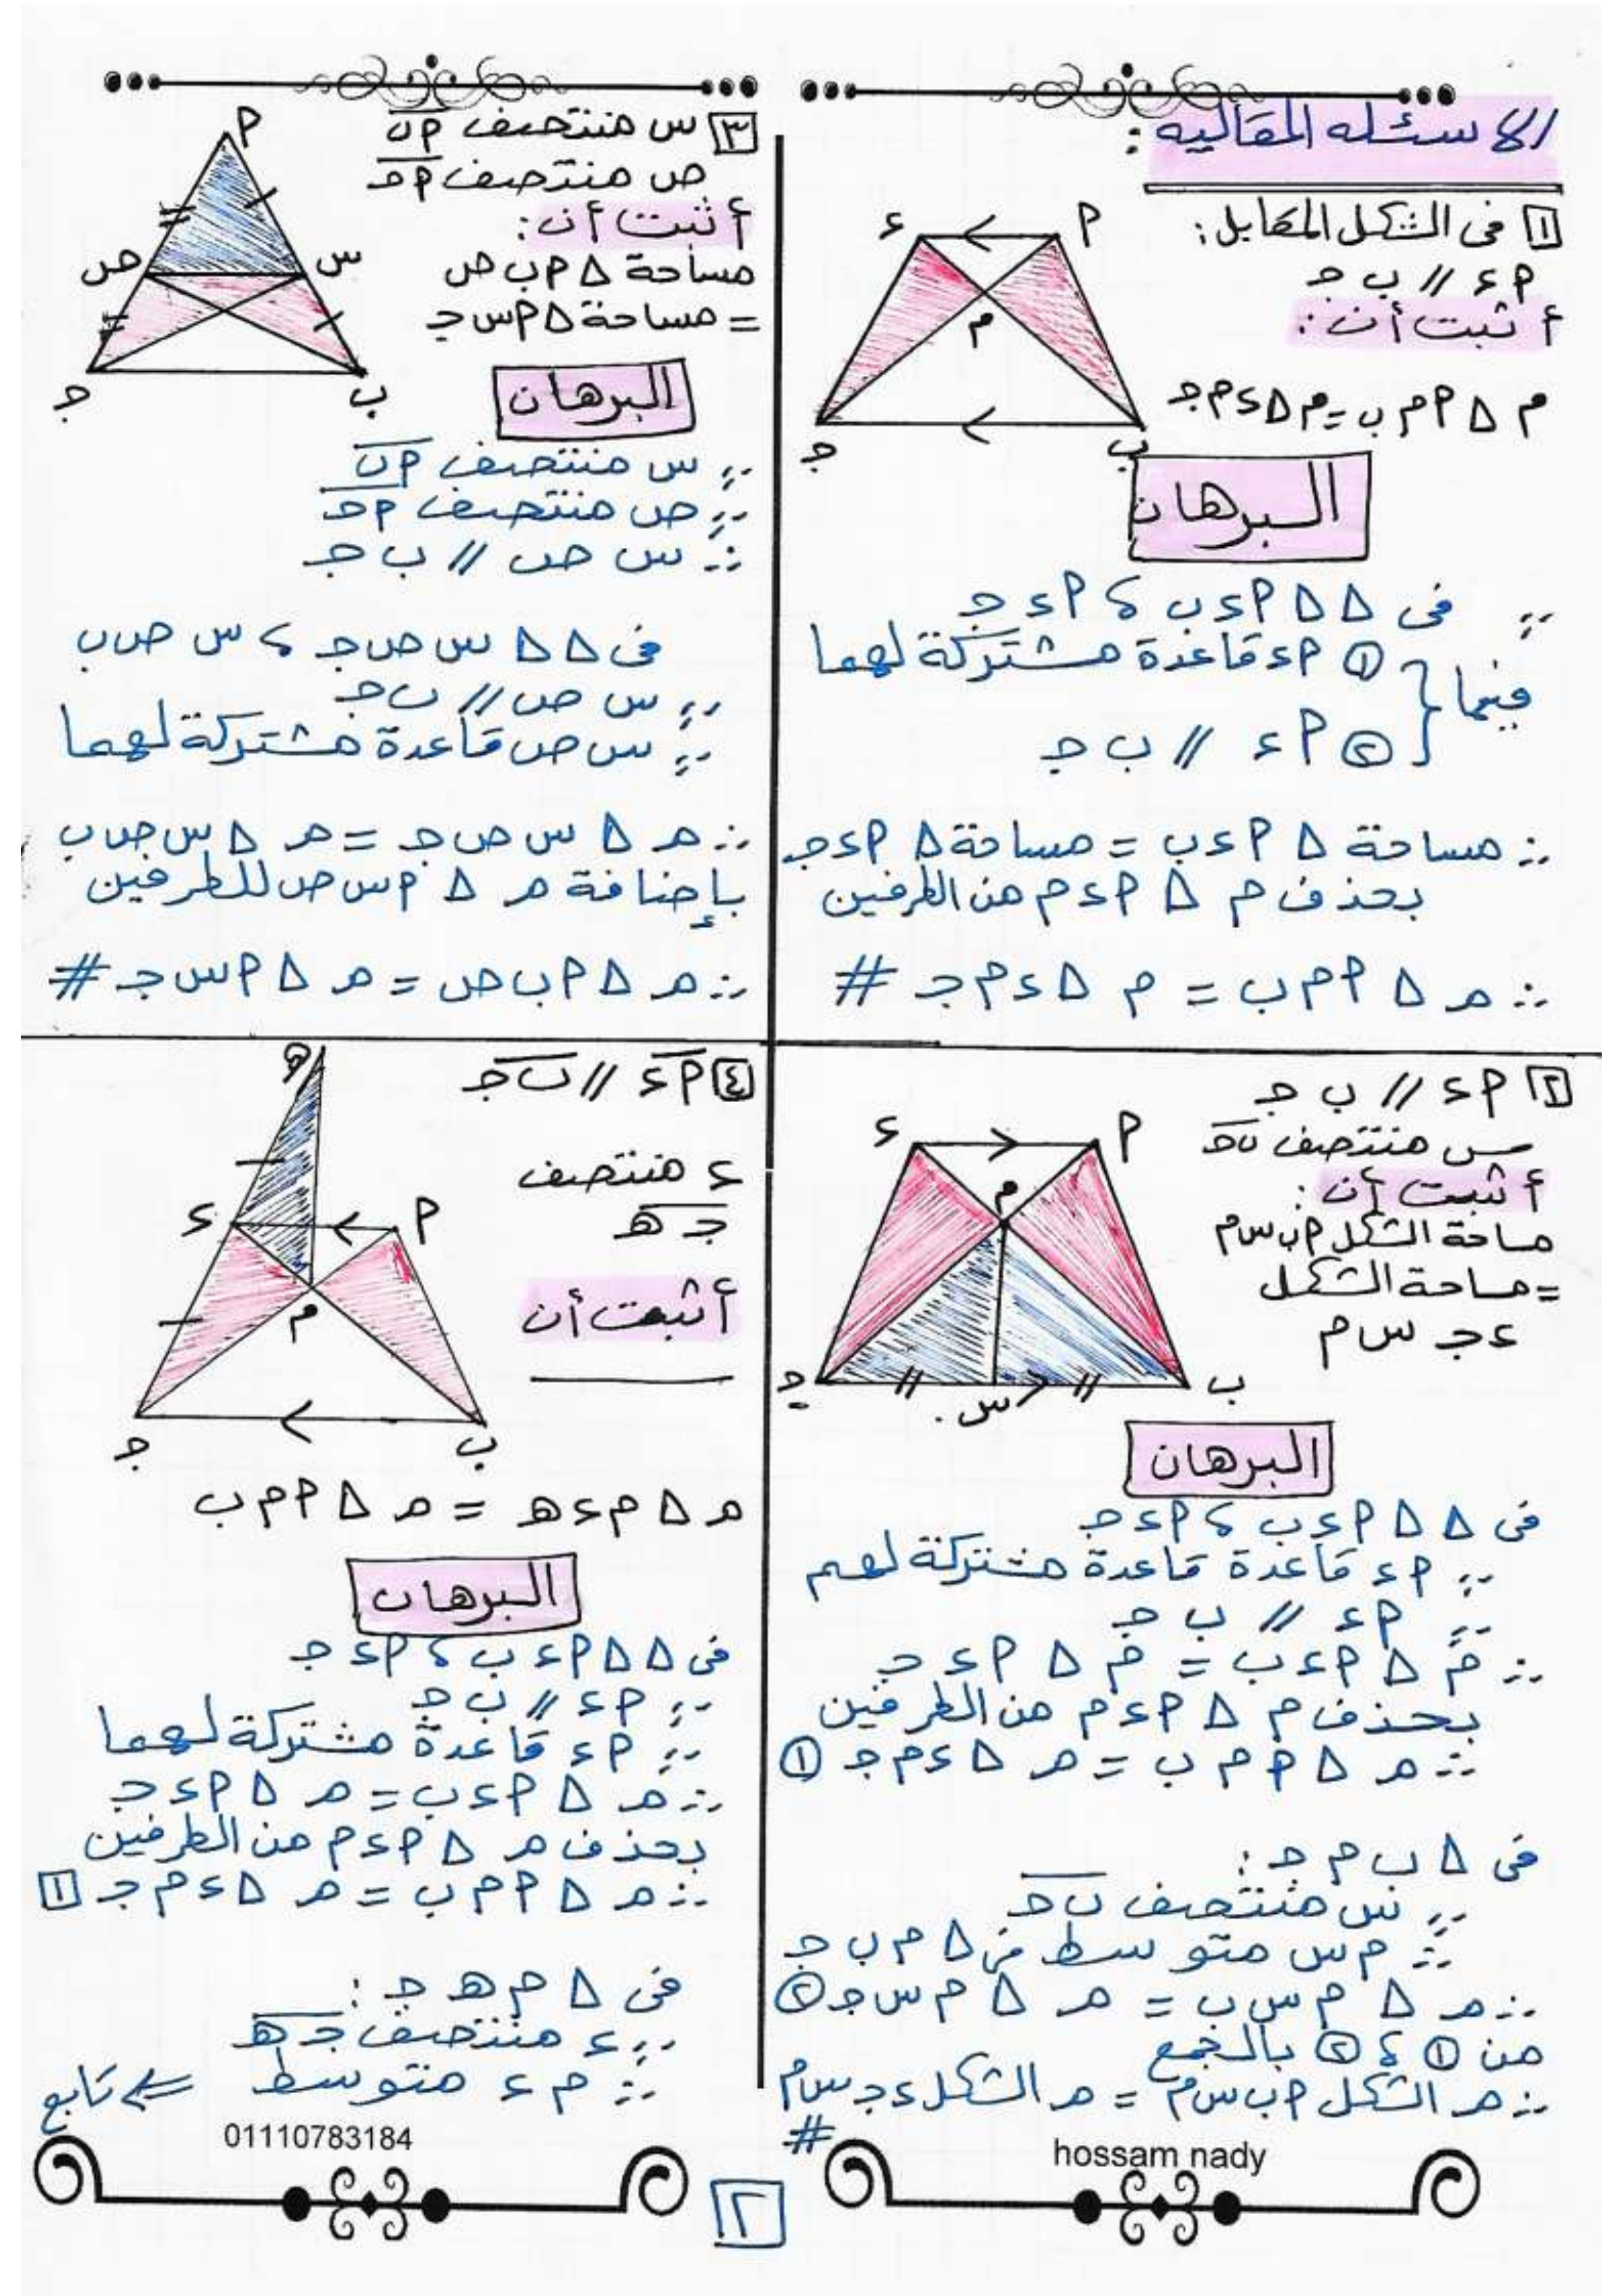 الاسئله المقاليه :
١ فى الشكل المقابل :
أ ء // ب ج
أ ثبت أن :
م Δ أ م ب = م Δ ء م ج
البرهان
∵ فى Δ Δ أ ء ب ، أ ء ج
فيهما { ① أ ء قاعدة مشتركة لهما
② أ ء // ب ج
∴ مساحة Δ أ ء ب = مساحة Δ أ ء ج
بحذف م Δ أ ء م من الطرفين
∴ م Δ أ م ب = م Δ ء م ج #
٢ أ ء // ب ج
س منتصف ب ج
أ ثبت أن :
مساحة الشكل أ ب س م
= مساحة الشكل
ء ج س م
البرهان
فى Δ Δ أ ء ب ، أ ء ج
∵ أ ء قاعدة قاعدة مشتركة لهم
∵ أ ء // ب ج
∴ م Δ أ ء ب = م Δ أ ء ج
بحذف م Δ أ ء م من الطرفين
∴ م Δ أ م ب = م Δ ء م ج ①
فى Δ ب م ج :
∵ س منتصف ب ج
∴ م س متوسط فى Δ م ب ج
∴ م Δ م س ب = م Δ م س ج ②
من ① ، ② بالجمع
∴ م الشكل أ ب س م = م الشكل ء ج س م
#
٣ س منتصف أ ب
ص منتصف أ ج
أ ثبت أن :
مساحة Δ أ ب ص
= مساحة Δ أ س ج
البرهان
∵ س منتصف أ ب
∵ ص منتصف أ ج
∴ س ص // ب ج
فى Δ Δ س ص ج ، س ص ب
∵ س ص // ب ج
∵ س ص قاعدة مشتركة لهما
∴ م Δ س ص ج = م Δ س ص ب
بإضافة م Δ أ س ص للطرفين
∴ م Δ أ ب ص = م Δ أ س ج #
٤ أ ء // ب ج
ء منتصف
ج ه
أ ثبت أن
م Δ م ء ه = م Δ أ م ب
البرهان
فى Δ Δ أ ء ب ، أ ء ج
∵ أ ء // ب ج
∵ أ ء قاعدة مشتركة لهما
∴ م Δ أ ء ب = م Δ أ ء ج
بحذف م Δ أ ء م من الطرفين
∴ م Δ أ م ب = م Δ ء م ج ١
فى Δ م ه ج :
∵ ء منتصف ج ه
∴ م ء متوسط ⇐ تابع
hossam nady
01110783184
٢